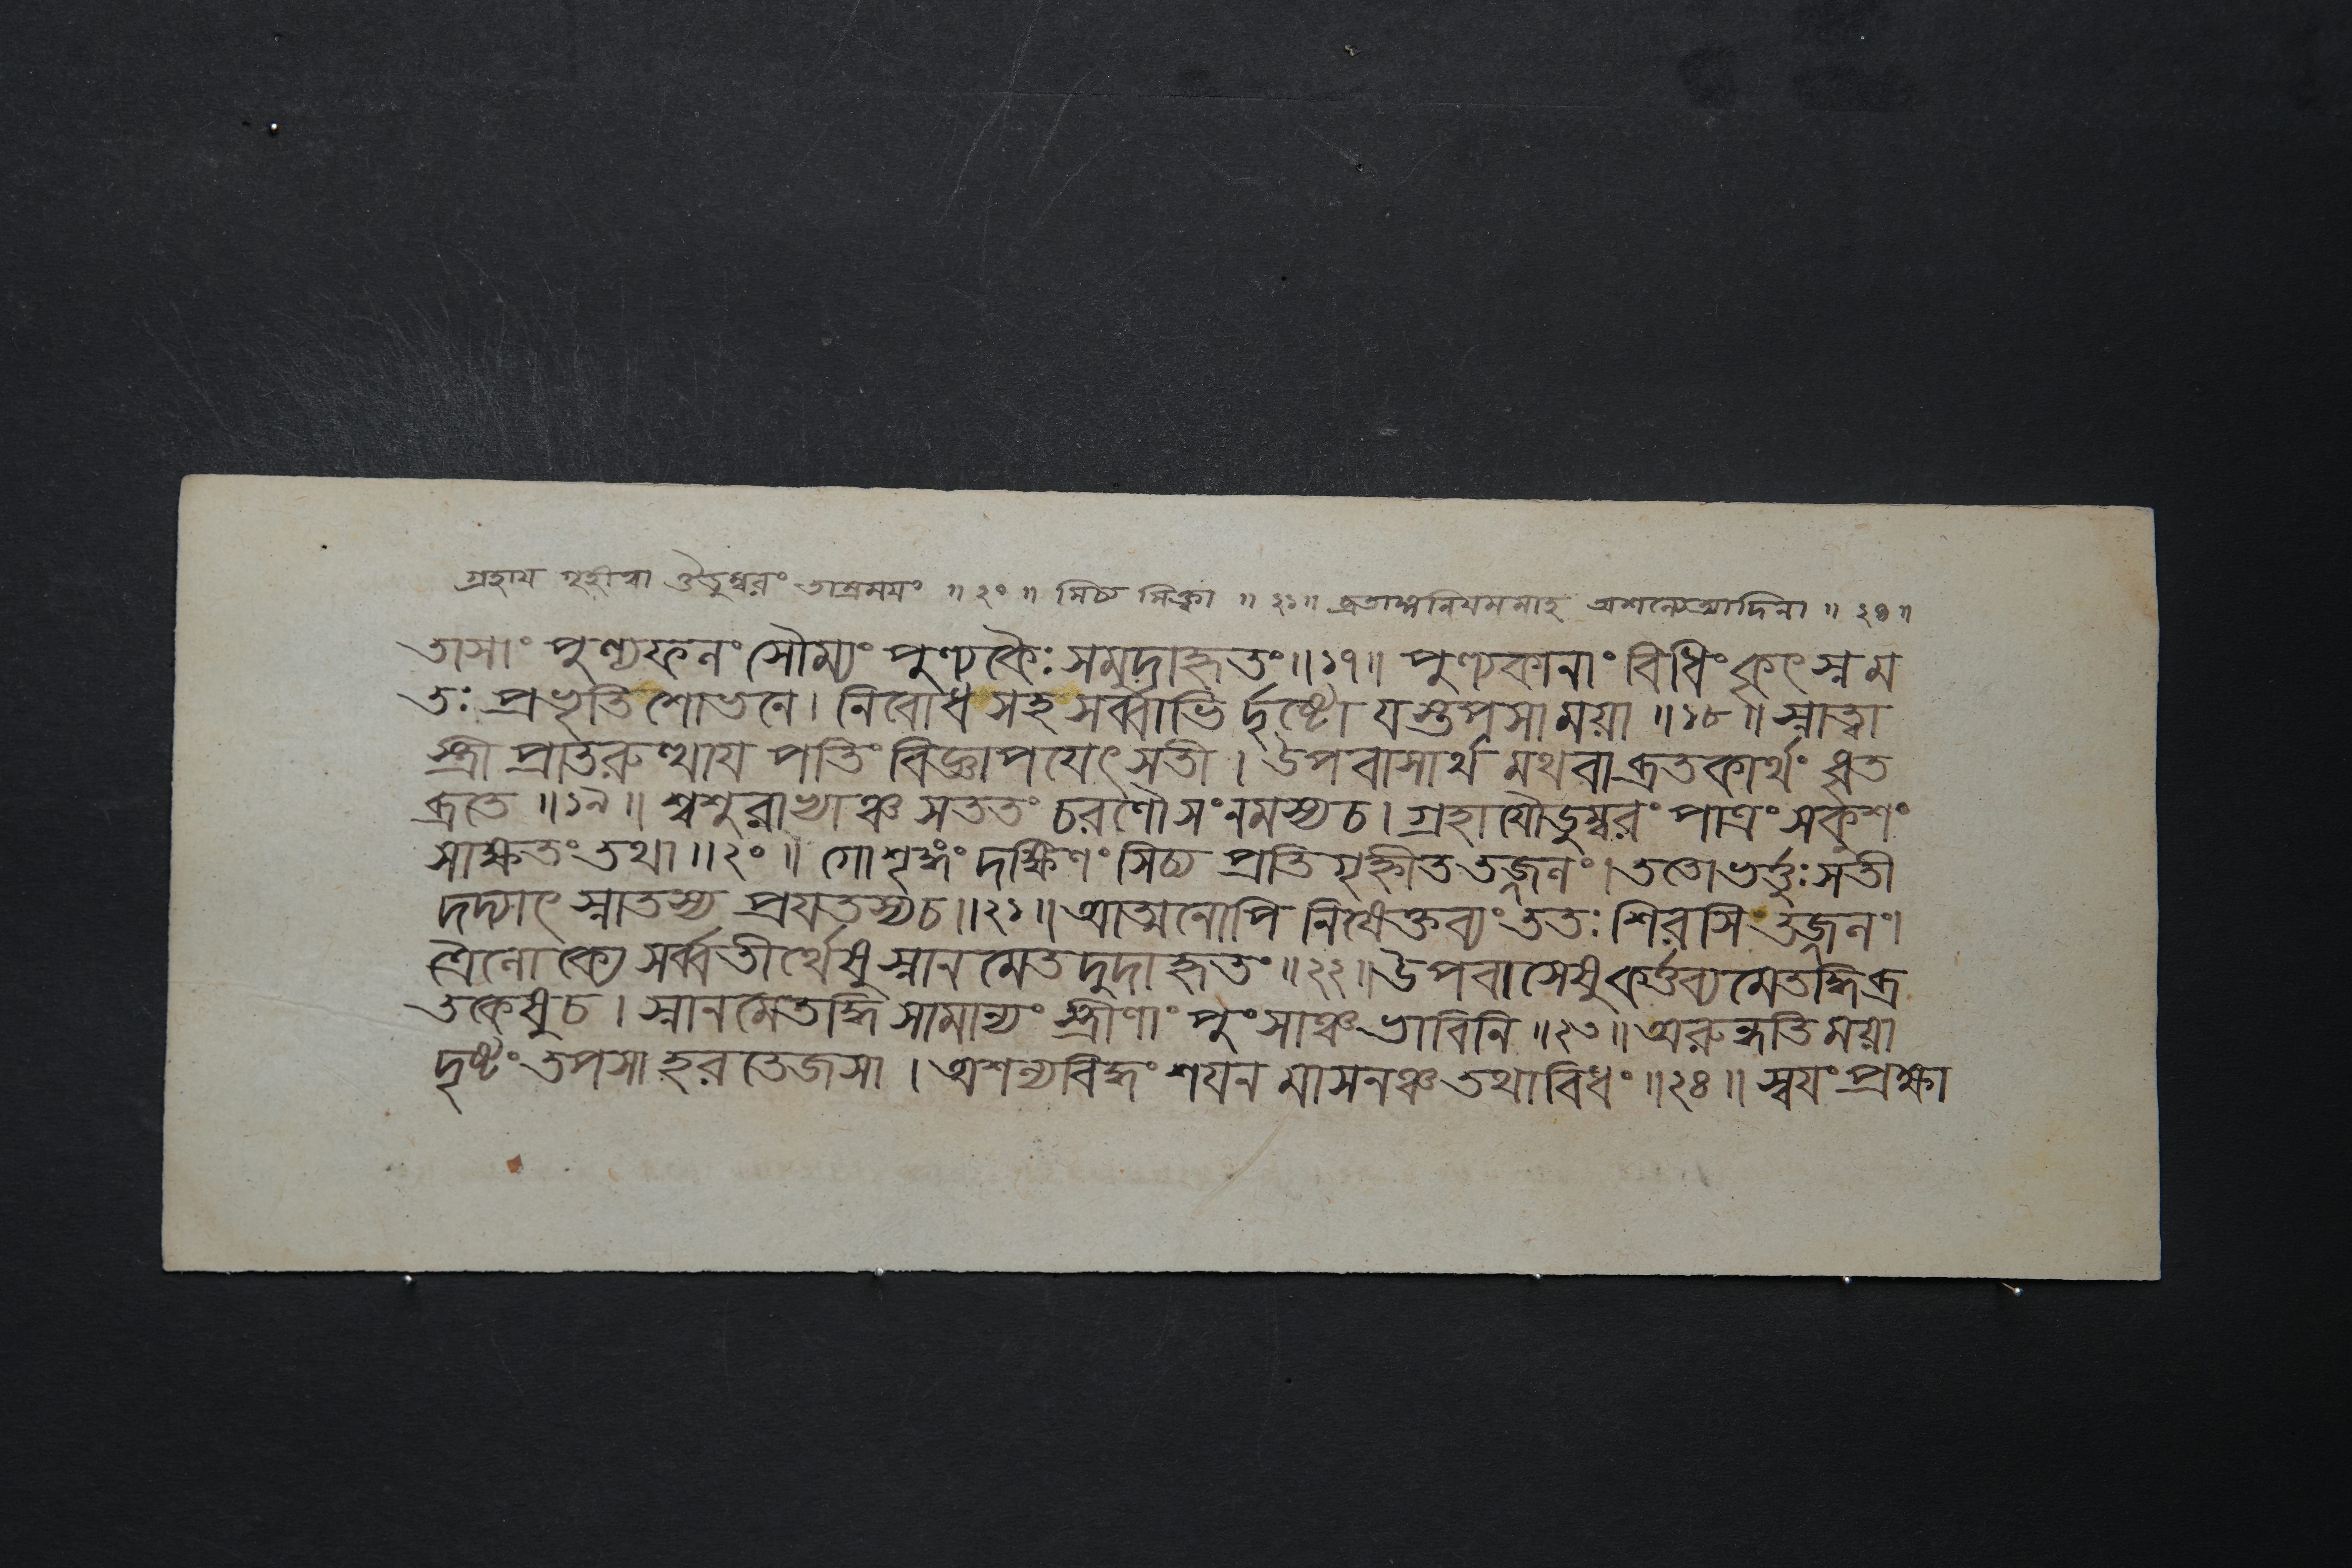 গ্রহায গৃহীত্বা ঔডুম্বরং তাম্রময়ং ॥ ২০ ॥ সিচ্য সিক্ত্বা ॥ ২১॥ ব্রতাঙ্গনিযমমাহ অশনেত্যাদিনা ॥ ২৪॥
তাসাং পুণ্যফলং সৌম্যং পুণ্যকৈঃ সমুদাহৃতং॥১৭॥ পুণ্যকানাং বিধিং কৃৎস্নম
তঃ প্রভৃতি শোভনে। নিবোধ সহ সর্ব্বাভি র্দৃষ্টো যস্তপসা ময়া ॥১৮॥ স্নাত্বা
স্ত্রী প্রাতরুত্থায পতিং বিজ্ঞাপযেৎ সতী। উপবাসার্থ মথবা ব্রতকার্থং ধৃত
ব্রতে ॥১৯॥ শ্বশুরাখ্যাঞ্চ সততং চরণৌ সংনমস্য চ। গ্রহাযৌডুম্বরং পাত্রং সকুশং
সাক্ষতং তথা ॥২০॥ গোশৃঙ্গং দক্ষিণং সিচ্য প্রতিগৃহ্ণীত তজ্জলং। ততো ভর্ত্তুঃ সতী
দদ্যাৎ স্নাতস্য প্রযতস্য চ॥২১॥ আত্মনোপি নিষেক্তব্যং ততঃ শিরসি তজ্জলং।
ত্রৈলোক্যে সর্ব্বতীর্থেষু স্নান মেতদুদাহৃতং॥২২॥ উপবাসেষু কর্ত্তব্যমেতদ্ধি ব্র
তকেষু চ। স্নানমেতদ্ধি সামান্যং স্ত্রীণাং পুংসাঞ্চ ভাবিনি ॥২৩॥ অরুন্ধতি ময়া
দৃষ্টং তপসা হর তেজসা। অশল্যবিদ্ধং শযন মাসনঞ্চ তথাবিধং ॥২৪॥ স্বযং প্রক্ষা